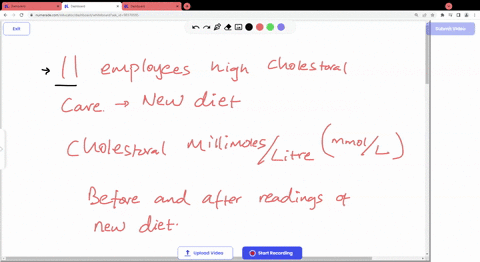 Exit
Submit Video
→ 11 employees high cholestoral
care → New diet
Cholestoral Millimoles/Litre (mmol/L)
Before and after readings of
new diet.
Upload Video
Start Recording